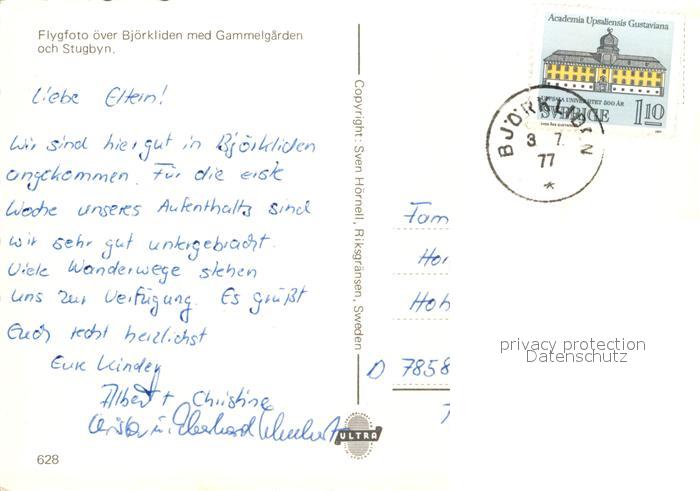 Flygfoto över Björkliden med Gammelgården
och Stugbyn.
Liebe Eltern!
Wir sind hier gut in Björkliden
angekommen. Für die erste
Woche unseres Aufenthalts sind
wir sehr gut untergebracht.
Viele Wanderwege stehen
uns zur Verfügung. Es grüßt
Euch recht herzlichst
Eure Kinder
Albert + Christine
Eberhard
628
Copyright: Sven Hörnell, Riksgränsen, Sweden
ULTRA
Academia Upsaliensis Gustaviana
UPPSALA UNIVERSITET 500 ÅR
SVERIGE
1.10
BJÖRKLIDEN
3 7.
77
*
Fam
Hoh
D 7858
privacy protection
Datenschutz